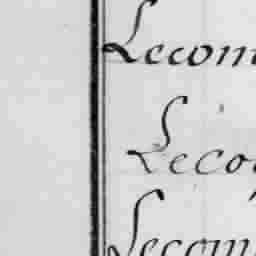 Lecom
Leco
Lecom